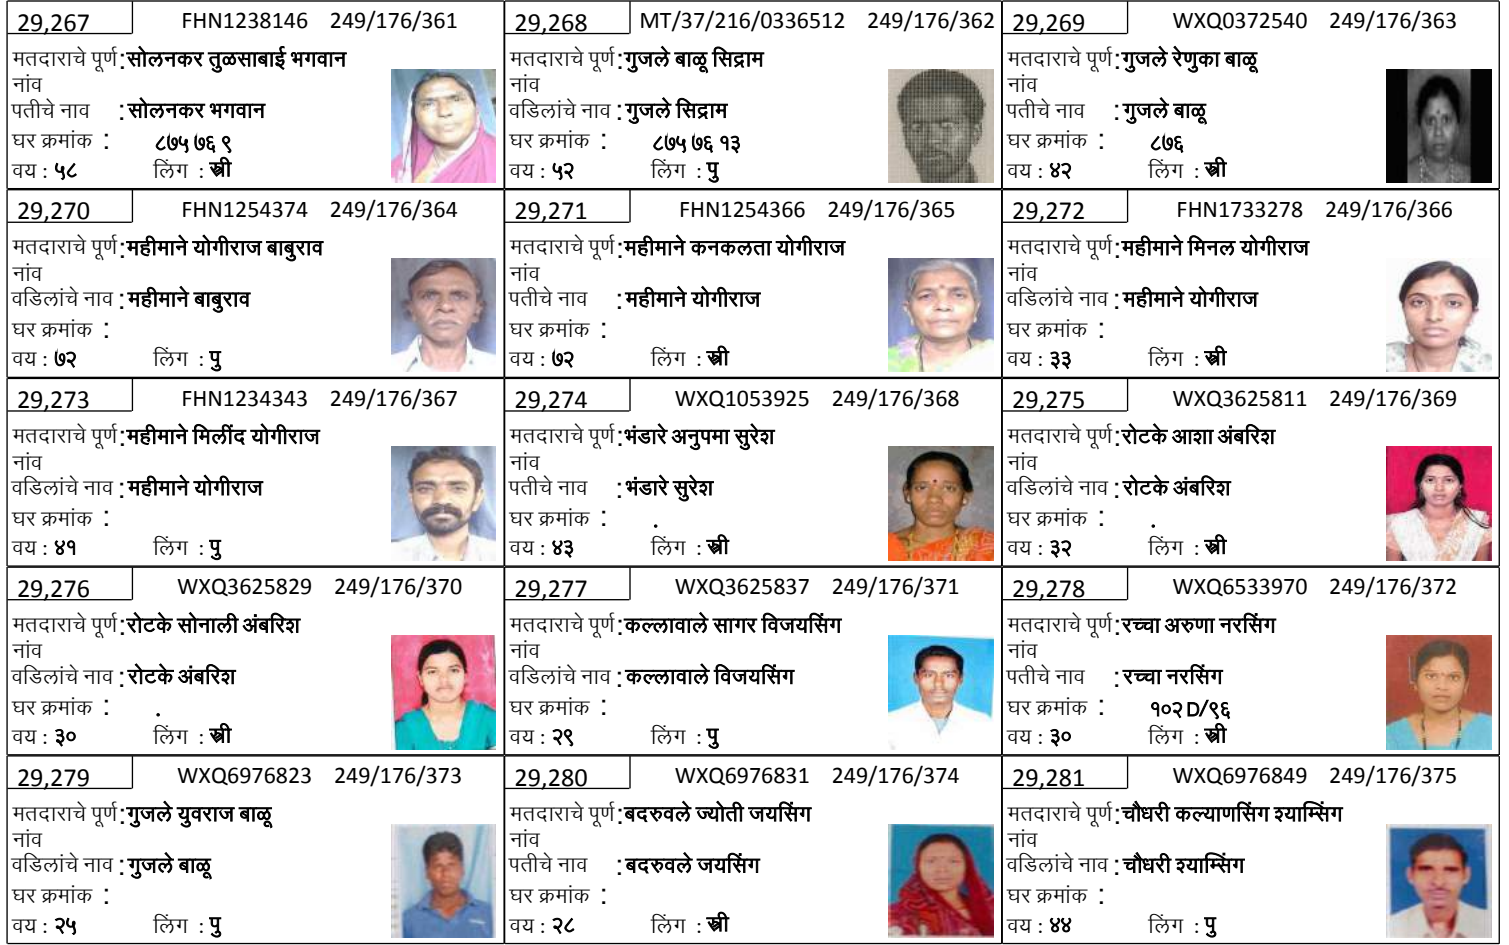 29,267 FHN1238146 249/176/361
मतदाराचे पूर्ण : सोलनकर तुळसाबाई भगवान
नांव
पतीचे नाव : सोलनकर भगवान
घर क्रमांक : ८७५ ७६ ९
वय : ५८ लिंग : स्त्री
29,268 MT/37/216/0336512 249/176/362
मतदाराचे पूर्ण : गुजले बाळू सिद्राम
नांव
वडिलांचे नाव : गुजले सिद्राम
घर क्रमांक : ८७५ ७६ १३
वय : ५२ लिंग : पु
29,269 WXQ0372540 249/176/363
मतदाराचे पूर्ण : गुजले रेणुका बाळू
नांव
पतीचे नाव : गुजले बाळू
घर क्रमांक : ८७६
वय : ४२ लिंग : स्त्री
29,270 FHN1254374 249/176/364
मतदाराचे पूर्ण : महीमाने योगीराज बाबुराव
नांव
वडिलांचे नाव : महीमाने बाबुराव
घर क्रमांक :
वय : ७२ लिंग : पु
29,271 FHN1254366 249/176/365
मतदाराचे पूर्ण : महीमाने कनकलता योगीराज
नांव
पतीचे नाव : महीमाने योगीराज
घर क्रमांक :
वय : ७२ लिंग : स्त्री
29,272 FHN1733278 249/176/366
मतदाराचे पूर्ण : महीमाने मिनल योगीराज
नांव
वडिलांचे नाव : महीमाने योगीराज
घर क्रमांक :
वय : ३३ लिंग : स्त्री
29,273 FHN1234343 249/176/367
मतदाराचे पूर्ण : महीमाने मिलींद योगीराज
नांव
वडिलांचे नाव : महीमाने योगीराज
घर क्रमांक :
वय : ४१ लिंग : पु
29,274 WXQ1053925 249/176/368
मतदाराचे पूर्ण : भंडारे अनुपमा सुरेश
नांव
पतीचे नाव : भंडारे सुरेश
घर क्रमांक : .
वय : ४३ लिंग : स्त्री
29,275 WXQ3625811 249/176/369
मतदाराचे पूर्ण : रोटके आशा अंबरिश
नांव
वडिलांचे नाव : रोटके अंबरिश
घर क्रमांक : .
वय : ३२ लिंग : स्त्री
29,276 WXQ3625829 249/176/370
मतदाराचे पूर्ण : रोटके सोनाली अंबरिश
नांव
वडिलांचे नाव : रोटके अंबरिश
घर क्रमांक : .
वय : ३० लिंग : स्त्री
29,277 WXQ3625837 249/176/371
मतदाराचे पूर्ण : कल्लावाले सागर विजयसिंग
नांव
वडिलांचे नाव : कल्लावाले विजयसिंग
घर क्रमांक :
वय : २९ लिंग : पु
29,278 WXQ6533970 249/176/372
मतदाराचे पूर्ण : रच्चा अरुणा नरसिंग
नांव
पतीचे नाव : रच्चा नरसिंग
घर क्रमांक : १०२ D/९६
वय : ३० लिंग : स्त्री
29,279 WXQ6976823 249/176/373
मतदाराचे पूर्ण : गुजले युवराज बाळू
नांव
वडिलांचे नाव : गुजले बाळू
घर क्रमांक :
वय : २५ लिंग : पु
29,280 WXQ6976831 249/176/374
मतदाराचे पूर्ण : बदरुवले ज्योती जयसिंग
नांव
पतीचे नाव : बदरुवले जयसिंग
घर क्रमांक :
वय : २८ लिंग : स्त्री
29,281 WXQ6976849 249/176/375
मतदाराचे पूर्ण : चौधरी कल्याणसिंग श्याम्सिंग
नांव
वडिलांचे नाव : चौधरी श्याम्सिंग
घर क्रमांक :
वय : ४४ लिंग : पु